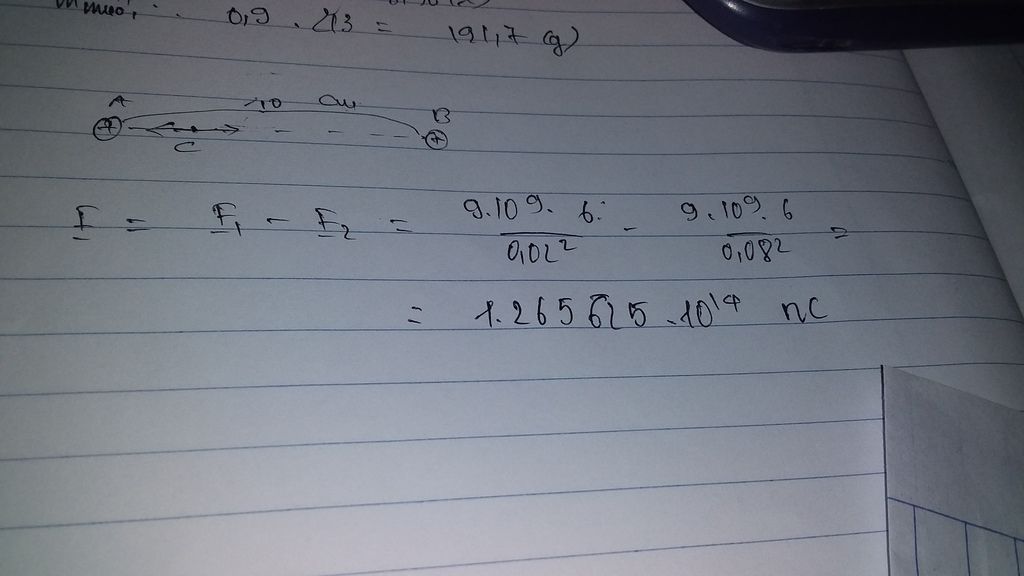 0,9 . 213 = 191,7 (g)
A 10 cm B
+ C +
F = F₁ - F₂ = 9.10⁹. 6. / 0,02² - 9.10⁹. 6 / 0,08² =
= 1.265625.10¹⁴ nC